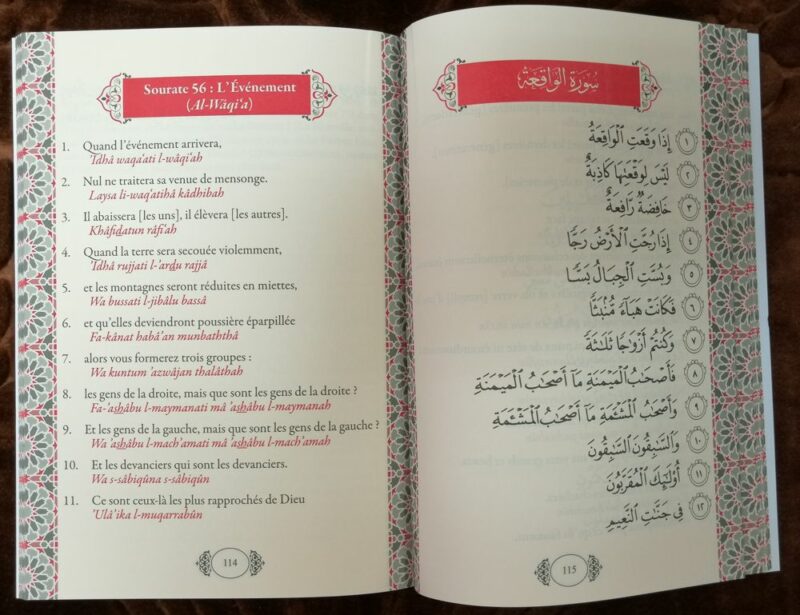 Sourate 56 : L'Événement
(Al-Wāqi'a)
1. Quand l'événement arrivera,
'Idhâ waqa'ati l-wâqi'ah
2. Nul ne traitera sa venue de mensonge.
Laysa li-waq'atihâ kâdhibah
3. Il abaissera [les uns], il élèvera [les autres].
Khâfidatun râfi'ah
4. Quand la terre sera secouée violemment,
'Idhâ rujjati l-'ardu rajjâ
5. et les montagnes seront réduites en miettes,
Wa bussati l-jibâlu bassâ
6. et qu'elles deviendront poussière éparpillée
Fa-kânat habâ'an munbaththâ
7. alors vous formerez trois groupes :
Wa kuntum 'azwâjan thalâthah
8. les gens de la droite, mais que sont les gens de la droite ?
Fa-'ashâbu l-maymanati mâ 'ashâbu l-maymanah
9. Et les gens de la gauche, mais que sont les gens de la gauche ?
Wa 'ashâbu l-mach'amati mâ 'ashâbu l-mach'amah
10. Et les devanciers qui sont les devanciers.
Wa s-sâbiqûna s-sâbiqûn
11. Ce sont ceux-là les plus rapprochés de Dieu
'Ulâ'ika l-muqarrabûn
114
سُورَةُ الوَاقِعَةِ
١ إِذَا وَقَعَتِ ٱلْوَاقِعَةُ
٢ لَيْسَ لِوَقْعَتِهَا كَاذِبَةٌ
٣ خَافِضَةٌ رَّافِعَةٌ
٤ إِذَا رُجَّتِ ٱلْأَرْضُ رَجًّا
٥ وَبُسَّتِ ٱلْجِبَالُ بَسًّا
٦ فَكَانَتْ هَبَآءً مُّنۢبَثًّا
٧ وَكُنتُمْ أَزْوَٰجًا ثَلَٰثَةً
٨ فَأَصْحَٰبُ ٱلْمَيْمَنَةِ مَآ أَصْحَٰبُ ٱلْمَيْمَنَةِ
٩ وَأَصْحَٰبُ ٱلْمَشْـَٔمَةِ مَآ أَصْحَٰبُ ٱلْمَشْـَٔمَةِ
١٠ وَٱلسَّٰبِقُونَ ٱلسَّٰبِقُونَ
١١ أُو۟لَٰٓئِكَ ٱلْمُقَرَّبُونَ
١٢ فِى جَنَّٰتِ ٱلنَّعِيمِ
115